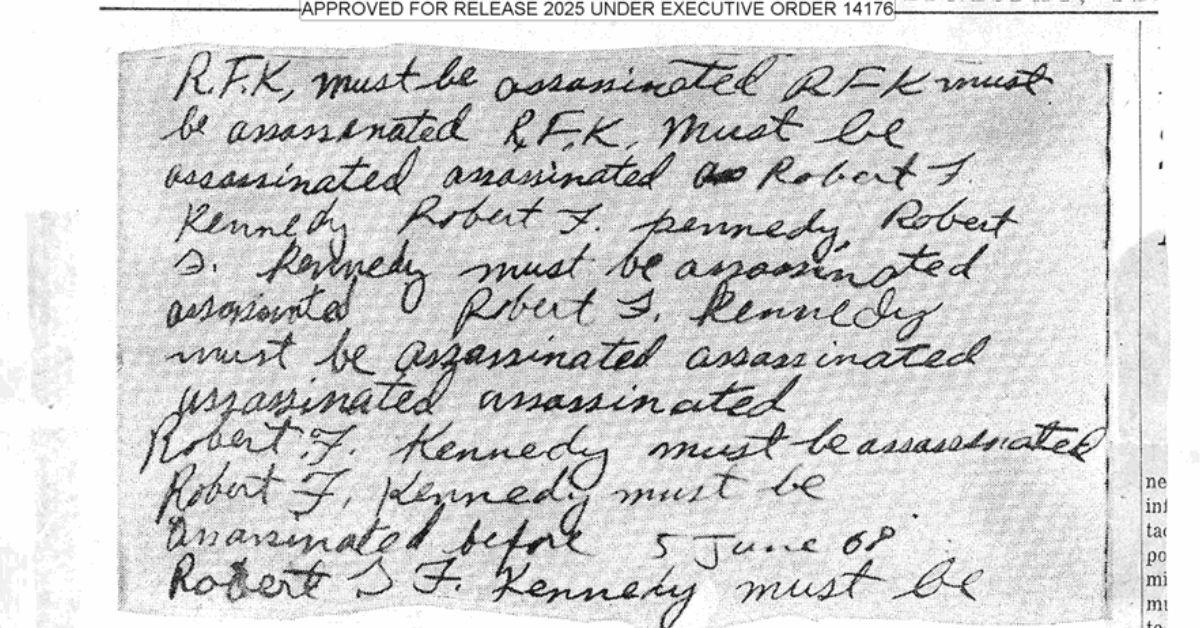 APPROVED FOR RELEASE 2025 UNDER EXECUTIVE ORDER 14176
R.F.K, must be assassinated RFK must
be assassinated R.F.K. must be
assassinated assassinated Robert F.
Kennedy Robert F. pennedy, Robert
F. Kennedy must be assassinated
assassinated Robert F. Kennedy
must be assassinated assassinated
assassinated assassinated
Robert F. Kennedy must be assassinated
Robert F. Kennedy must be
assassinated before 5 June 68
Robert F. Kennedy must be
ne
inf
tac
po
mi
mu